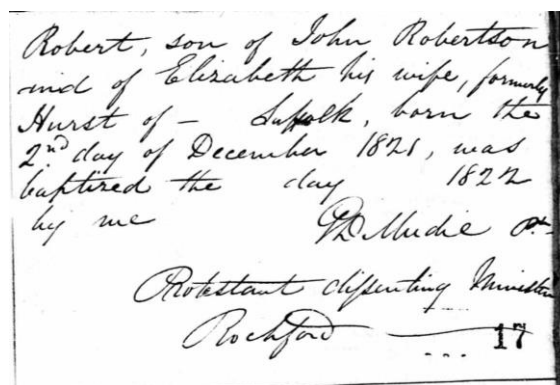 Robert, son of John Robertson
and of Elizabeth his wife, formerly
Hurst of – Suffolk, born the
2nd day of December 1821, was
baptized the day 1822
by me
Mudie
Protestant dissenting Minister
Rochford
17